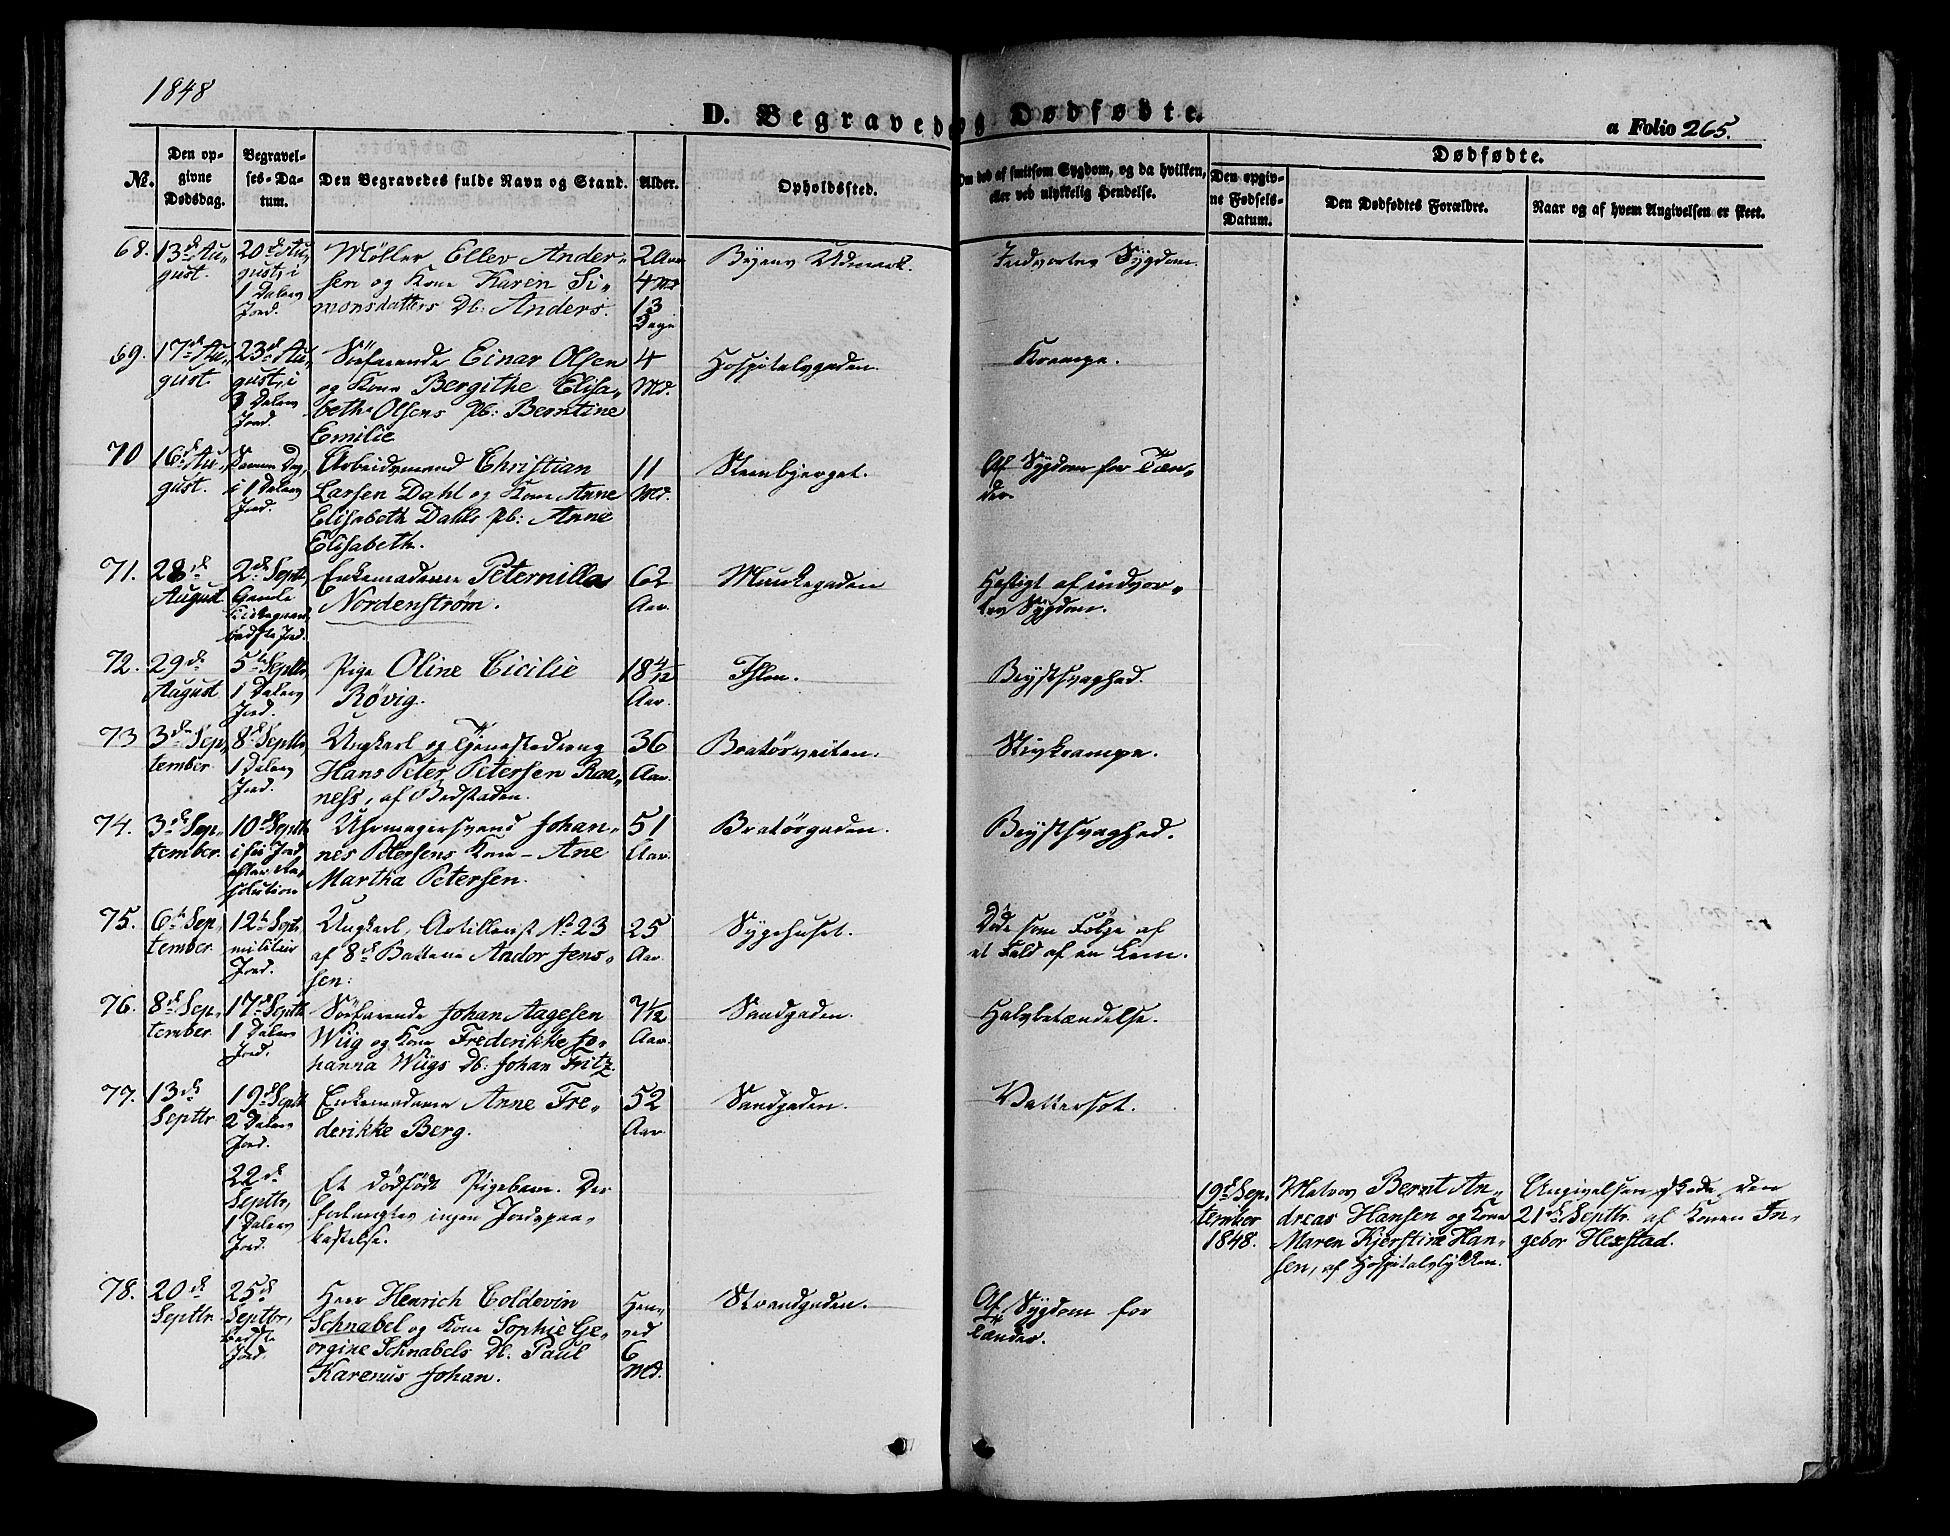 1848
D. Begravede og Dødfødte.
a Folio 265.
No.
Den op-
givne
Dødsdag.
Begravel-
ses-Da-
tum.
Den Begravedes fulde Navn og Stand.
Alder.
Opholdssted.
Om død af smitsom Sygdom, og da hvilken,
eller ved ulykkelig Hendelse.
Dødfødte.
Den opgiv-
ne Fødsels-
Datum.
Den Dødfødtes Forældre.
Naar og af hvem Angivelsen er skeet.
68.
13de Au-
gust.
20de Au-
gust, i
1 Dalers
Jord.
Möller Ellev Ander-
sen og Kone Karen Si-
monsdatters Db: Anders.
2 Aar
4 Md
13
Dage
Byens Udmark.
Indvortes Sygdom.
69.
17de Au-
gust.
23de Au-
gust, i
3 Dalers
Jord.
Söefarende Einar Olsen
og Kone Bergithe Elisa-
betha Olsens Pb: Berntine
Emilie
4
Md.
Hospitalsgaden.
Krampe.
70
16de Au-
gust.
Samme Dag,
i 1 Dalers
Jord.
Arbeidsmand Christian
Larsen Dahl og Kone Anne
Elisabeth Dahls Pb: Anne
Elisabeth.
11
Md.
Steenbjerget.
Af Sygdom for Tæn-
der.
71.
28de
August
2de Septb,
Gamle
bedste Jord.
Enkemadame Peternilla
Nordenström.
62
Aar.
Munkegaden
Heftigt af indvor-
tes Sygdom.
72.
29de
August
5te Septbr,
1 Dalers
Jord.
Pige Oline Cicilie
Rövig.
18 4/12
Aar.
Ihlen.
Brystsvaghed.
73
3de Sep-
tember.
8de Septbr,
1 Dalers
Jord.
Ungkarl og Tjenestedreng
Hans Peter Petersen Raa-
ness, af Bedstaden.
36
Aar.
Bratörveiten.
Stivkrampe.
74.
3de Sep-
tember.
10de Septb
i fri Jord,
efter Re-
solution
Uhrmagersvend Johan-
nes Petersens Kone - Ane
Martha Petersen.
51
Aar.
Bratörgaden.
Brystsvaghed.
75.
6te Sep-
tember.
12te Sept,
militair
Jord.
Ungkarl, Artillerist No 23
af 8de Batterie Andor Jens-
sen.
25
Aar.
Sygehuset.
Döde som Fölge af
et Fald af en Lem.
76.
8de Sep-
tember.
17de Septb
1 Dalers
Jord.
Söefarende Johan Aagesen
Wiig og Kone Frederikke Jo-
hanna Wiigs Db: Johan Fritz.
7/12
Aar.
Sandgaden.
Halsbetændelse.
77.
13de
Septbr
19de Septb
2 Dalers
Jord.
Enkemadame Anne Fre-
derikke Berg.
52
Aar.
Sandgaden.
Vattersot.
22de
Septbr,
1 Dalers
Jord.
Et dödfödt Pigebarn. Der
forlangtes ingen Jordspaa-
kastelse.
19de Sep-
tember
1848.
Matros Bernt An-
dreas Hansen og Kone
Maren Kjerstine Han-
sen, af Hospitalslykken.
Angivelsen skede den
21de Septbr. af Konen In-
gebor Hexstad.
78.
20de
Septbr
25de
Septbr,
bedste
Jord.
Herr Henrich Coldevin
Schnabel og Kone Sophie Ge-
orgine Schnabels Db. Paul
Karenus Johan.
Hen-
ved
6
Md.
Strandgaden.
Af Sygdom for
Tænder.